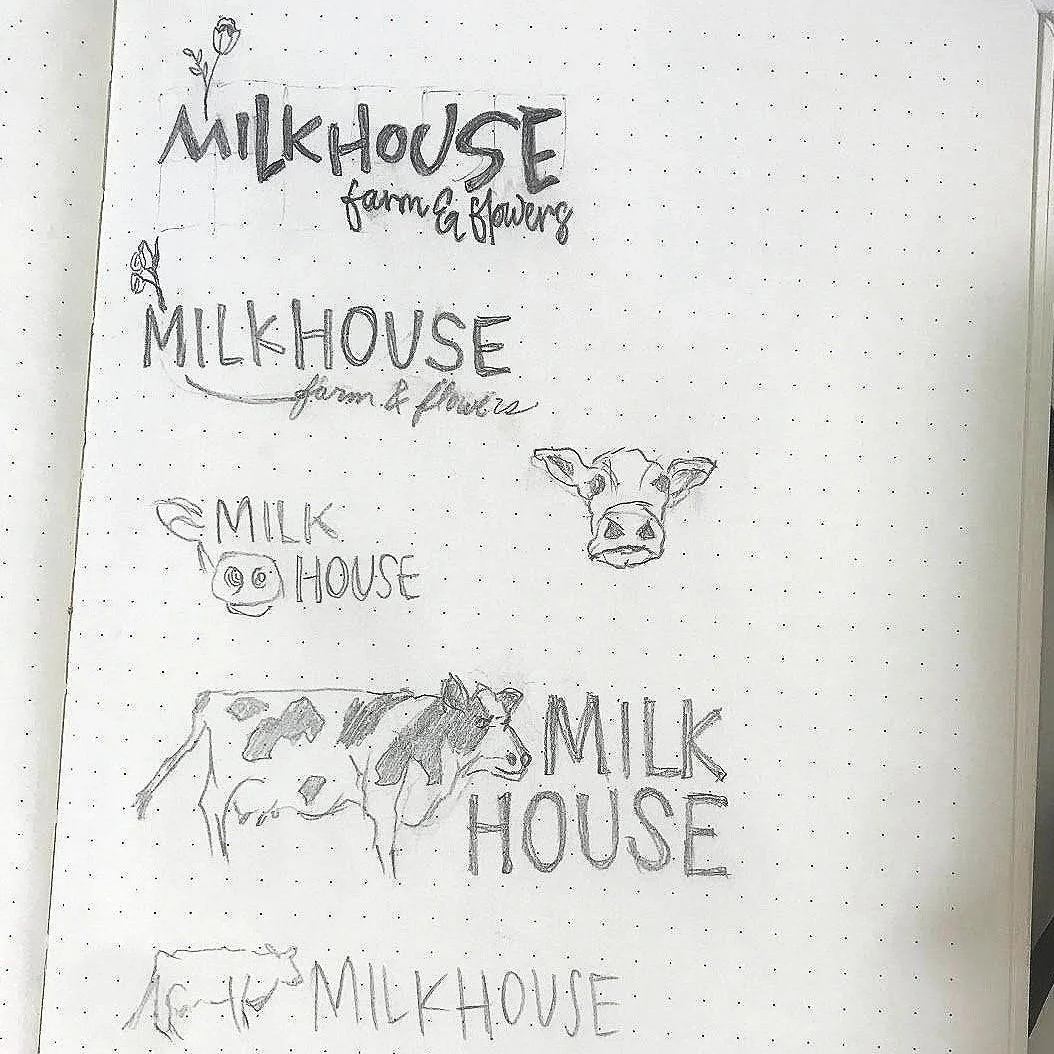 MILKHOUSE
farm & flowers
MILKHOUSE
farm & flowers
MILK
HOUSE
MILK
HOUSE
MILKHOUSE